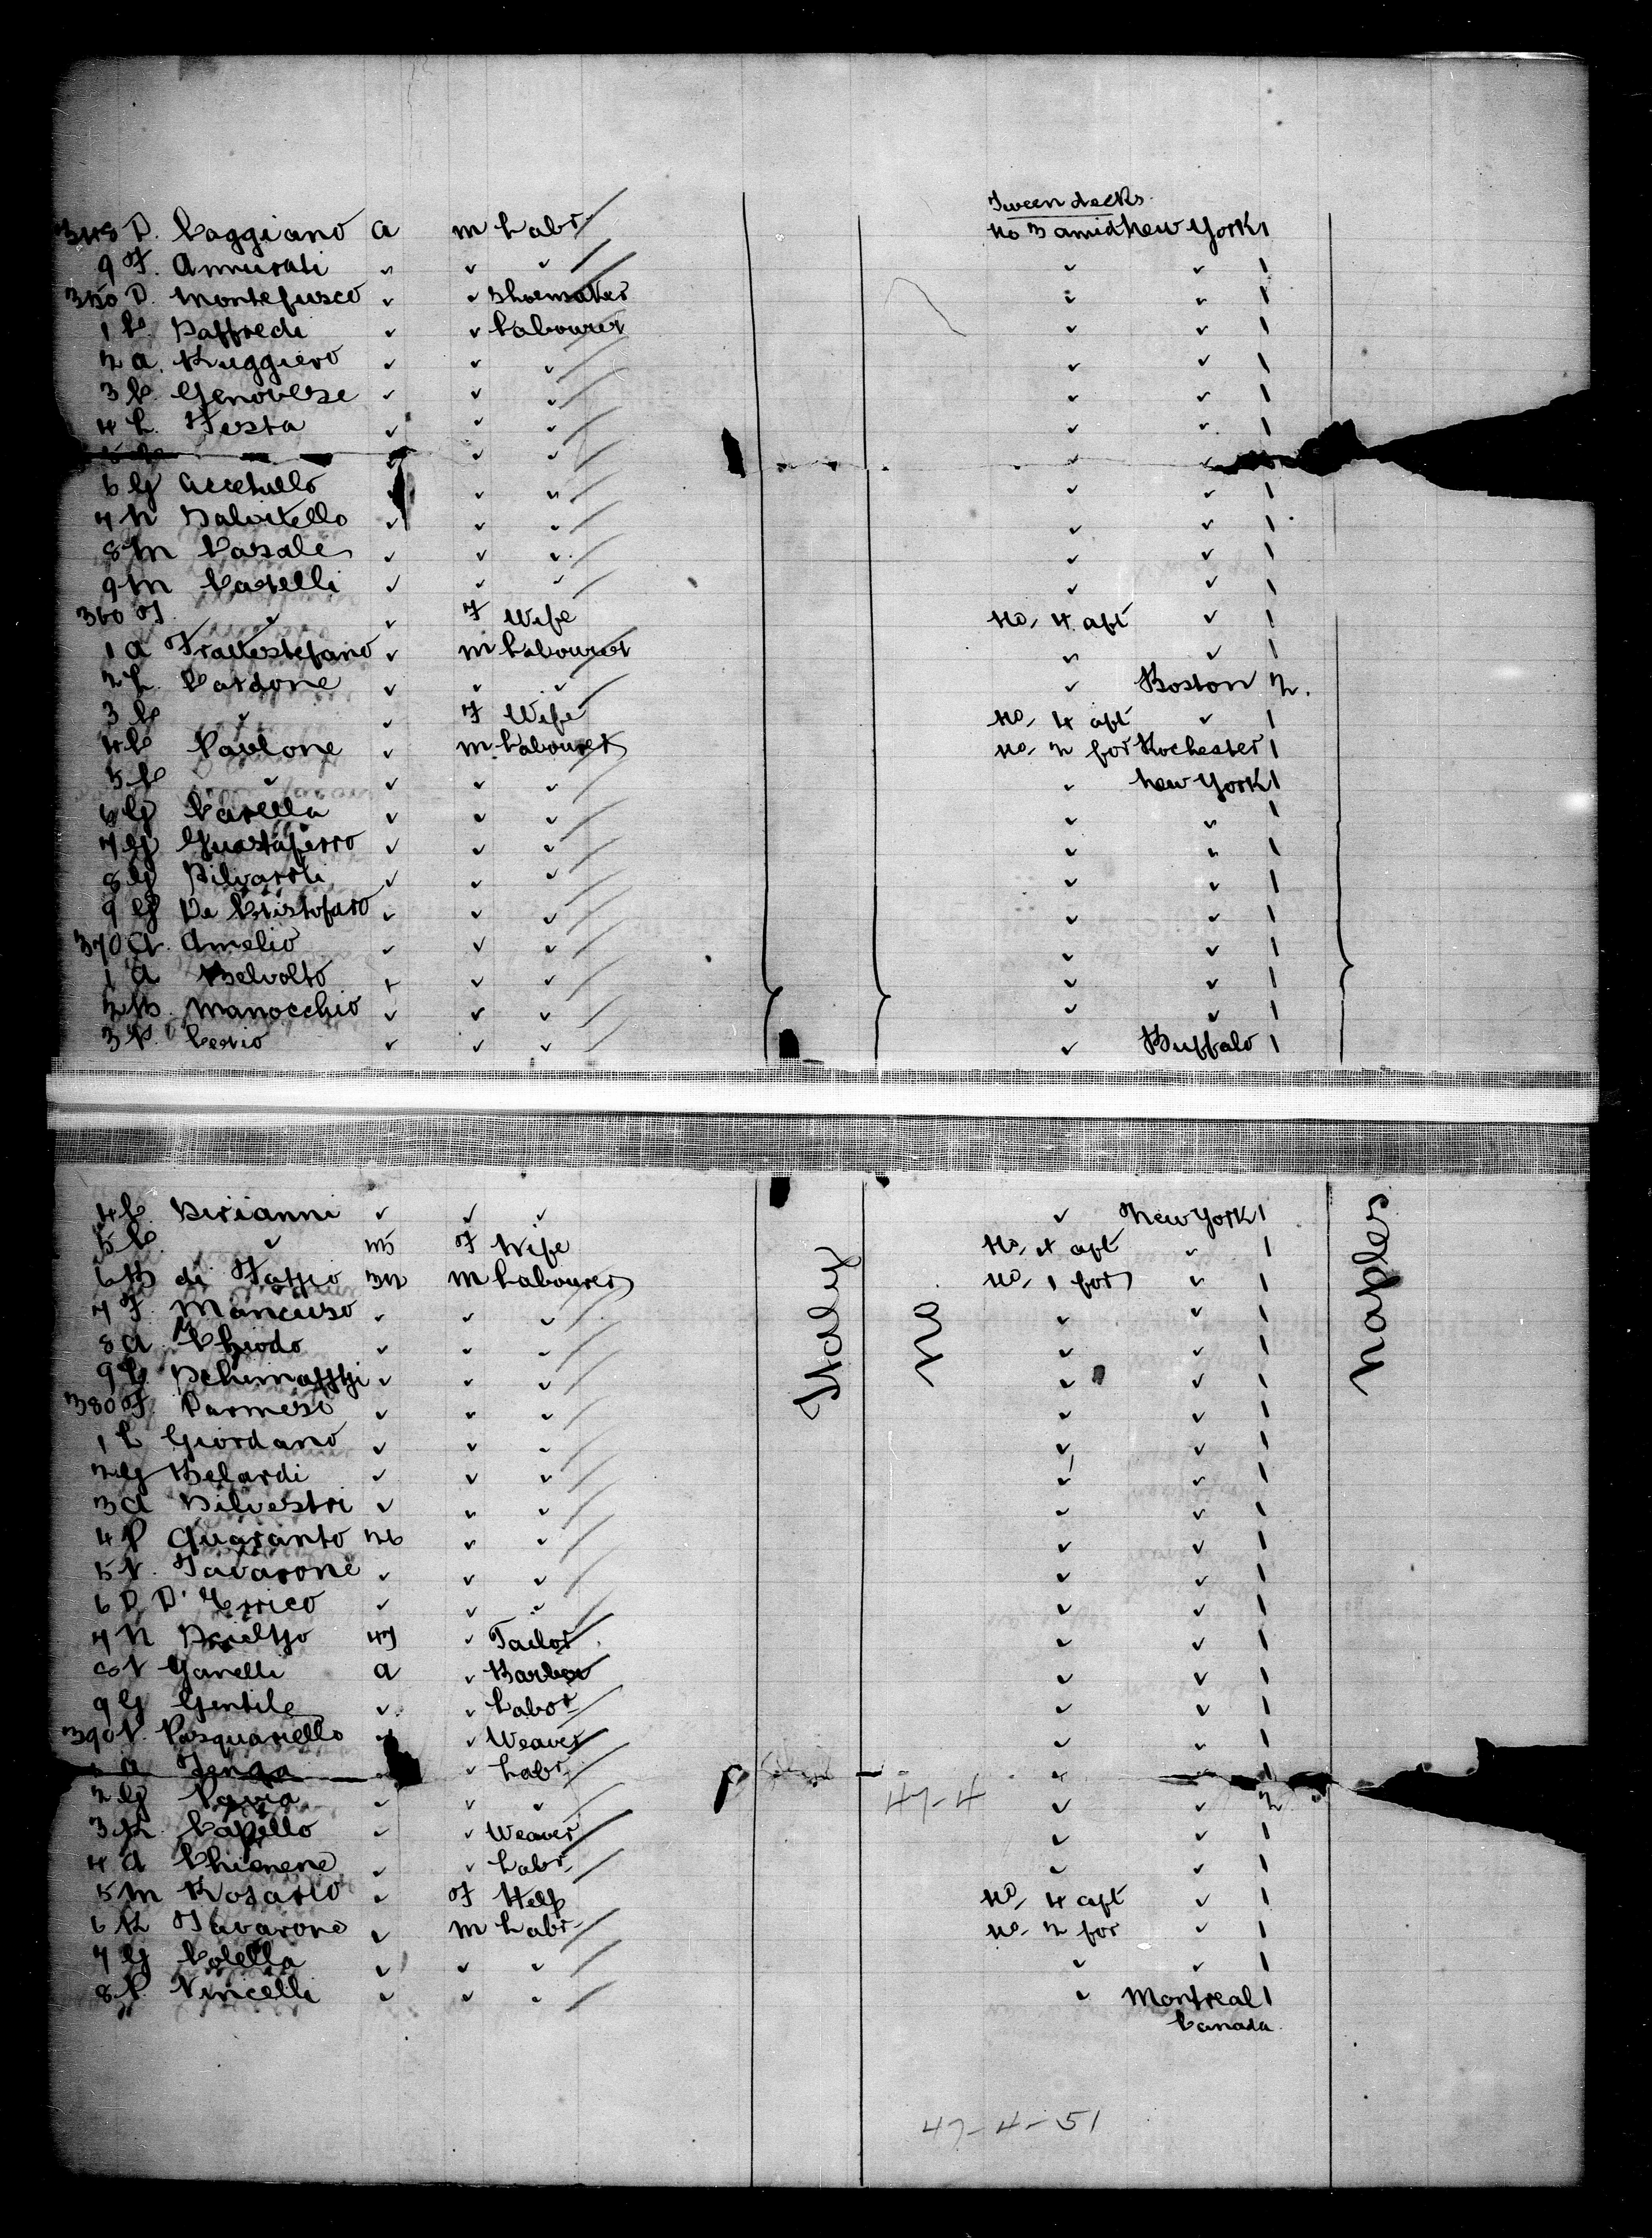 Tween decks
348 D. Caggiano a m Labr No 3 amid New York 1
9 F. Annurati ✓ ✓ ✓ ✓ ✓ 1
350 D. Montefusco ✓ ✓ Shoemaker ✓ ✓ 1
1 C. Saffredi ✓ ✓ Labourer ✓ ✓ 1
2 A. Ruggiero ✓ ✓ ✓ ✓ ✓ 1
3 C. Genovese ✓ ✓ ✓ ✓ ✓ 1
4 L. Testa ✓ ✓ ✓ ✓ ✓ 1
5 ✓ ✓ ✓ ✓
6 G Accetullo ✓ ✓ ✓ ✓ 1
7 N Salvitello ✓ ✓ ✓ ✓ ✓ 1
8 M Casale ✓ ✓ ✓ ✓ ✓ 1
9 M Caselli ✓ ✓ ✓ ✓ ✓ 1
360 F ✓ ✓ F Wife No. 4 aft ✓ 1
1 A Frattestefano ✓ m Labourer ✓ ✓ 1
2 L. Cardone ✓ ✓ ✓ ✓ Boston 2.
3 C ✓ ✓ F Wife No. 4 aft ✓ 1
4 C Carlone ✓ m Labourer No. 2 for Rochester 1
5 C ✓ ✓ ✓ ✓ ✓ New York 1
6 G Carella ✓ ✓ ✓ ✓ ✓ 1
7 G Guastaferro ✓ ✓ ✓ ✓ ✓ 1
8 G ✓ ✓ ✓ ✓ ✓ 1
9 G De Cristofaro ✓ ✓ ✓ ✓ ✓ 1
370 A. Amelio ✓ ✓ ✓ ✓ ✓ 1
1 A Belvolto ✓ ✓ ✓ ✓ ✓ 1
2 B. Manocchio ✓ ✓ ✓ ✓ ✓ 1
3 P. Cerio ✓ ✓ ✓ ✓ Buffalo 1
4 C. Sirianni ✓ ✓ ✓ ✓ New York 1
5 C. ✓ F Wife No. 4 aft ✓ 1
6 B di Fazzio 32 m Labourer No. 1 for ✓ 1
7 F. Mancuso ✓ ✓ ✓ ✓ ✓ 1
8 A. Chiodo ✓ ✓ ✓ ✓ ✓ 1
9 G Schimazzi ✓ ✓ ✓ ✓ ✓ 1
380 F. Parmesi ✓ ✓ ✓ ✓ ✓ 1
1 L Giordano ✓ ✓ ✓ ✓ ✓ 1
2 G Belardi ✓ ✓ ✓ ✓ ✓ 1
3 A Silvestri ✓ ✓ ✓ ✓ ✓ 1
4 P Quaranto 26 ✓ ✓ ✓ ✓ 1
5 V. Tavarone ✓ ✓ ✓ ✓ ✓ 1
6 D D'Errico ✓ ✓ ✓ ✓ ✓ 1
7 N 47 ✓ Tailor ✓ ✓ 1
8 V Ganelli a ✓ Barber ✓ ✓ 1
9 G Gentile ✓ ✓ Labor ✓ ✓ 1
390 V. Pasquariello ✓ ✓ Weaver ✓ ✓ 1
Tenga ✓ Labr ✓ ✓ 1
2 G Pavia ✓ ✓ ✓ 47-4 ✓ ✓ 2
3 R. Capello ✓ ✓ Weaver ✓ ✓ 1
4 A Chienene ✓ ✓ Labr ✓ ✓ 1
5 M Rosario ✓ F Help No. 4 aft ✓ 1
6 R Tavarone ✓ m Labr No. 2 for ✓ 1
7 G Colella ✓ ✓ ✓ ✓ ✓ 1
8 P. Vincelli ✓ ✓ ✓ ✓ Montreal 1
Canada
Italy
No
Naples
47-4-51